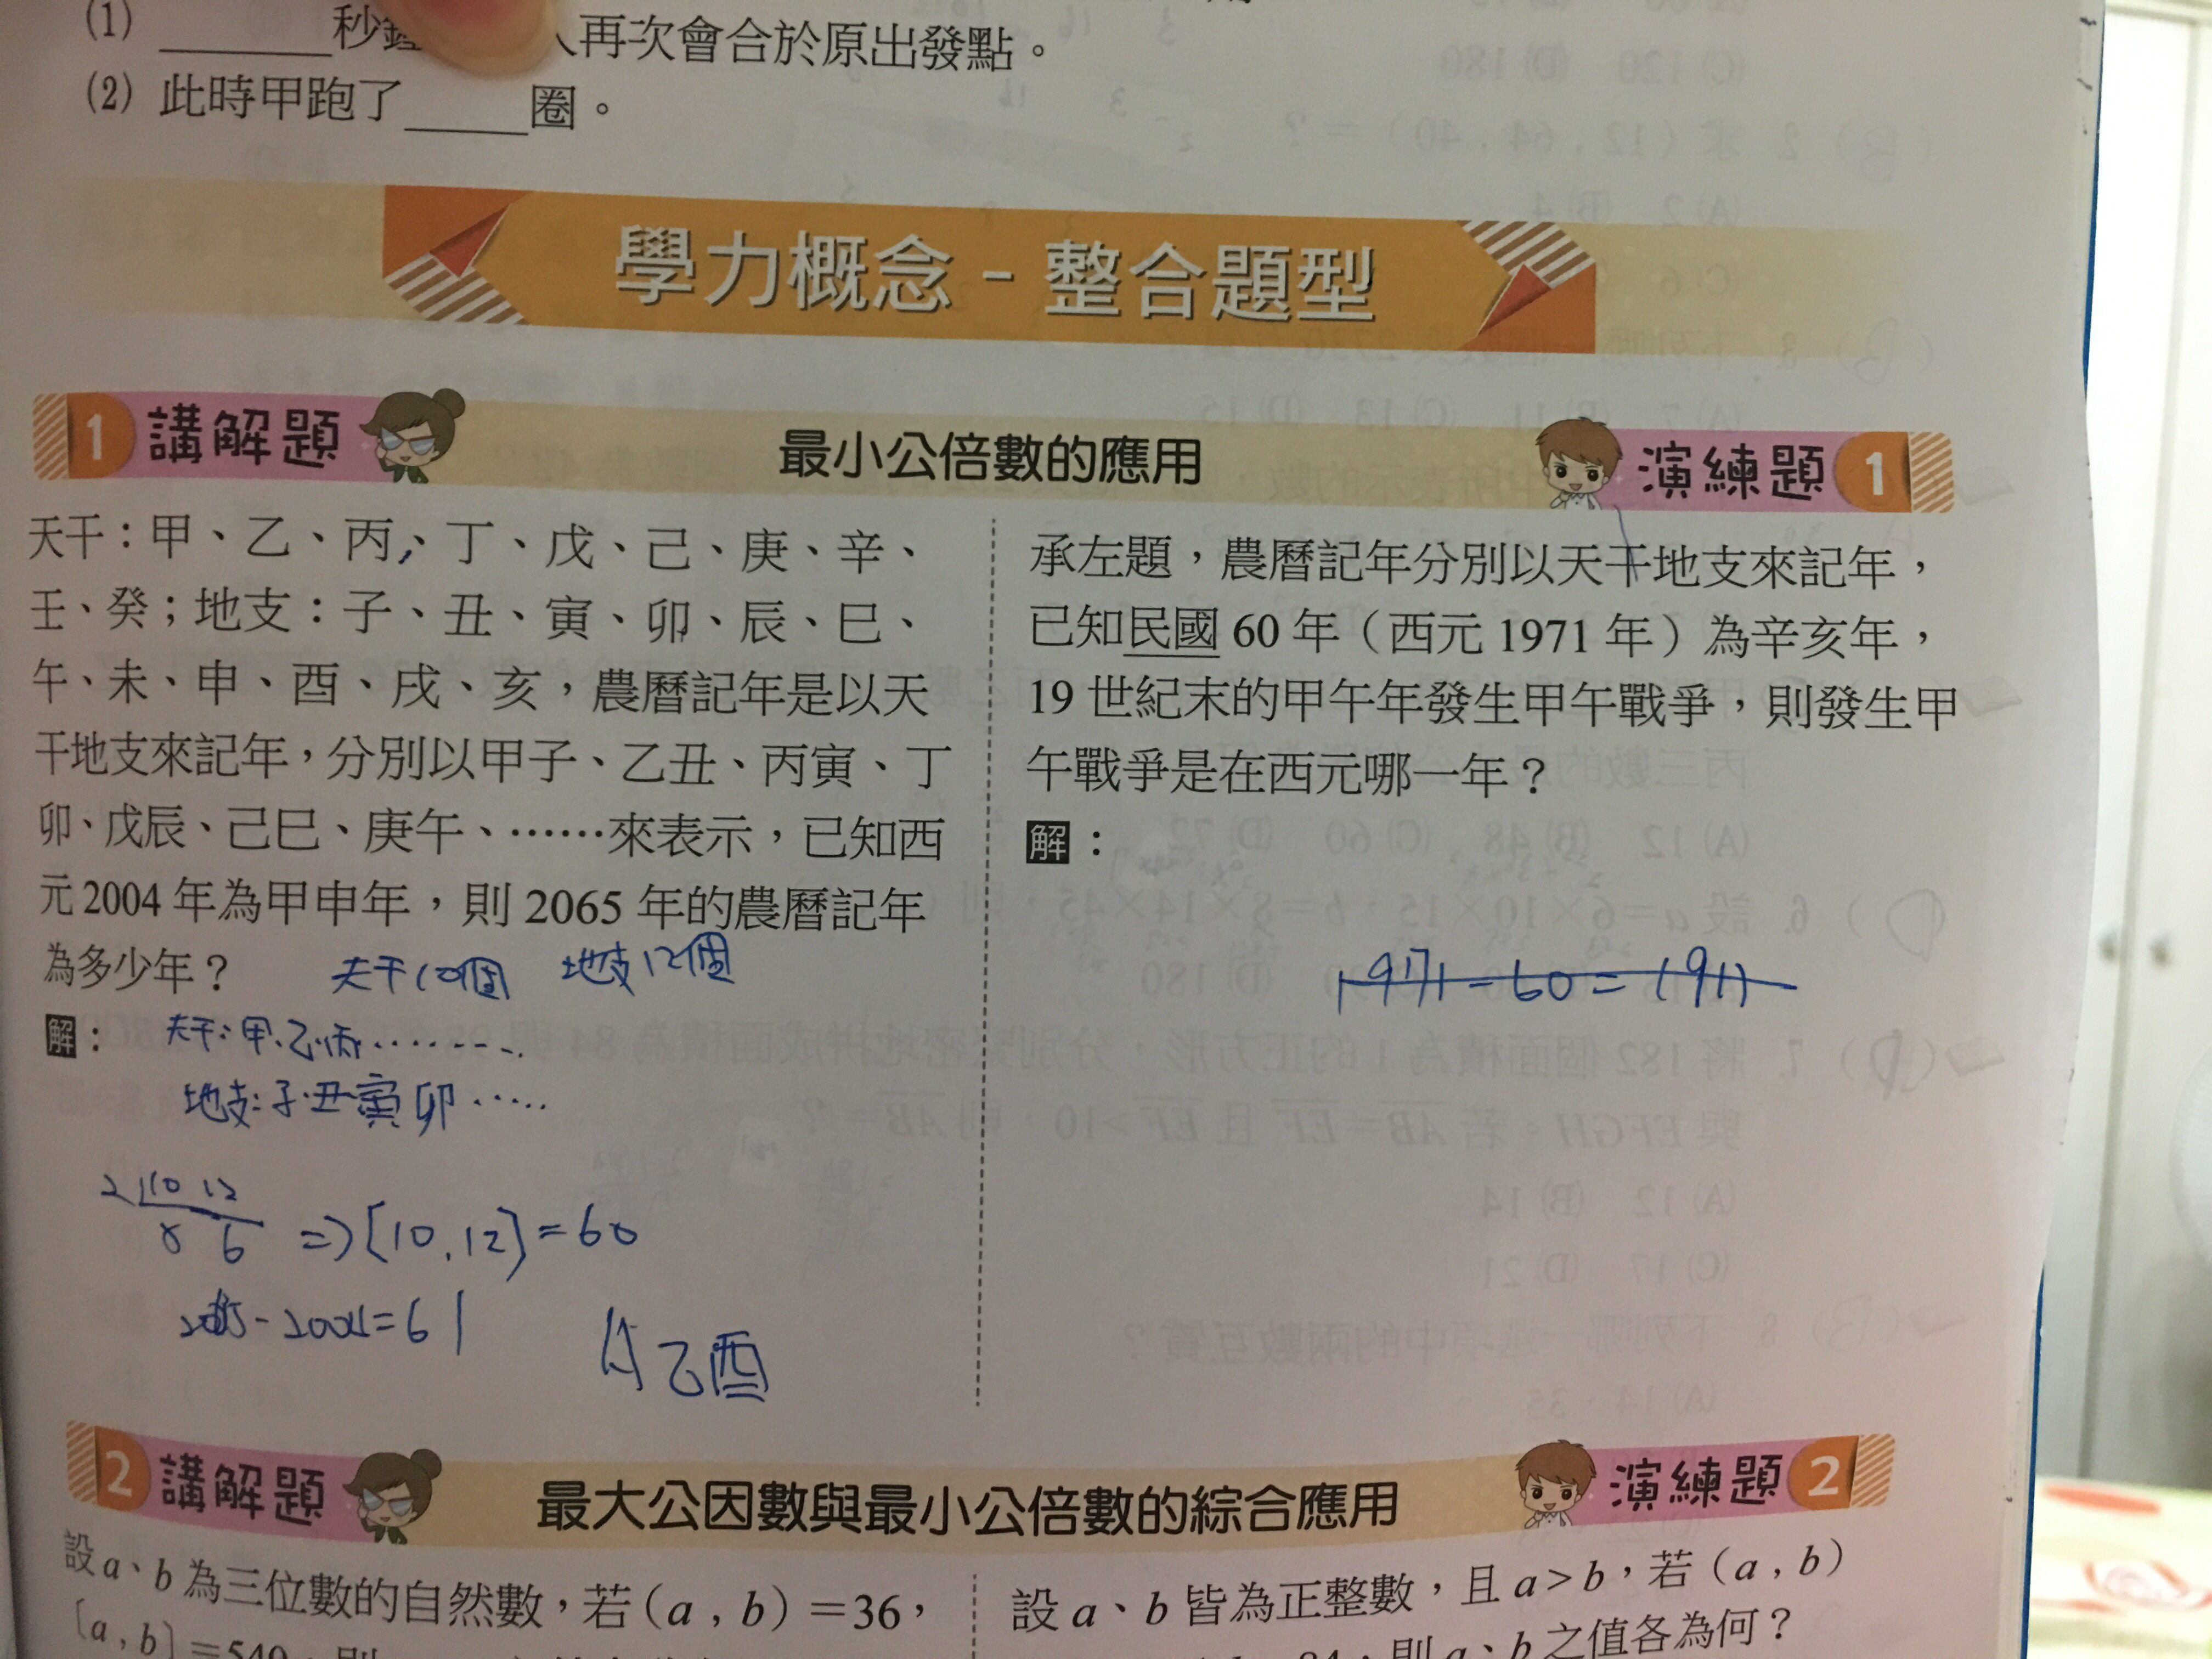 (1) ______秒鐘 人再次會合於原出發點。
(2) 此時甲跑了____圈。
學力概念-整合題型
1 講解題 最小公倍數的應用 演練題 1
天干：甲、乙、丙、丁、戊、己、庚、辛、
壬、癸；地支：子、丑、寅、卯、辰、巳、
午、未、申、酉、戌、亥，農曆記年是以天
干地支來記年，分別以甲子、乙丑、丙寅、丁
卯、戊辰、己巳、庚午、……來表示，已知西
元 2004 年為甲申年，則 2065 年的農曆記年
為多少年？
天干10個 地支12個
解：
天干：甲、乙、丙………
地支：子、丑寅卯……
2 10 12
5 6 => [10, 12] = 60
2065 - 2004 = 61
A 乙酉
承左題，農曆記年分別以天干地支來記年，
已知民國 60 年（西元 1971 年）為辛亥年，
19 世紀末的甲午年發生甲午戰爭，則發生甲
午戰爭是在西元哪一年？
解：
1971 - 60 = 1911
2 講解題 最大公因數與最小公倍數的綜合應用 演練題 2
設 a、b 為三位數的自然數，若（a , b）＝36，
〔a , b〕＝540，則
設 a、b 皆為正整數，且 a＞b，若（a , b）
84，則 a、b 之值各為何？